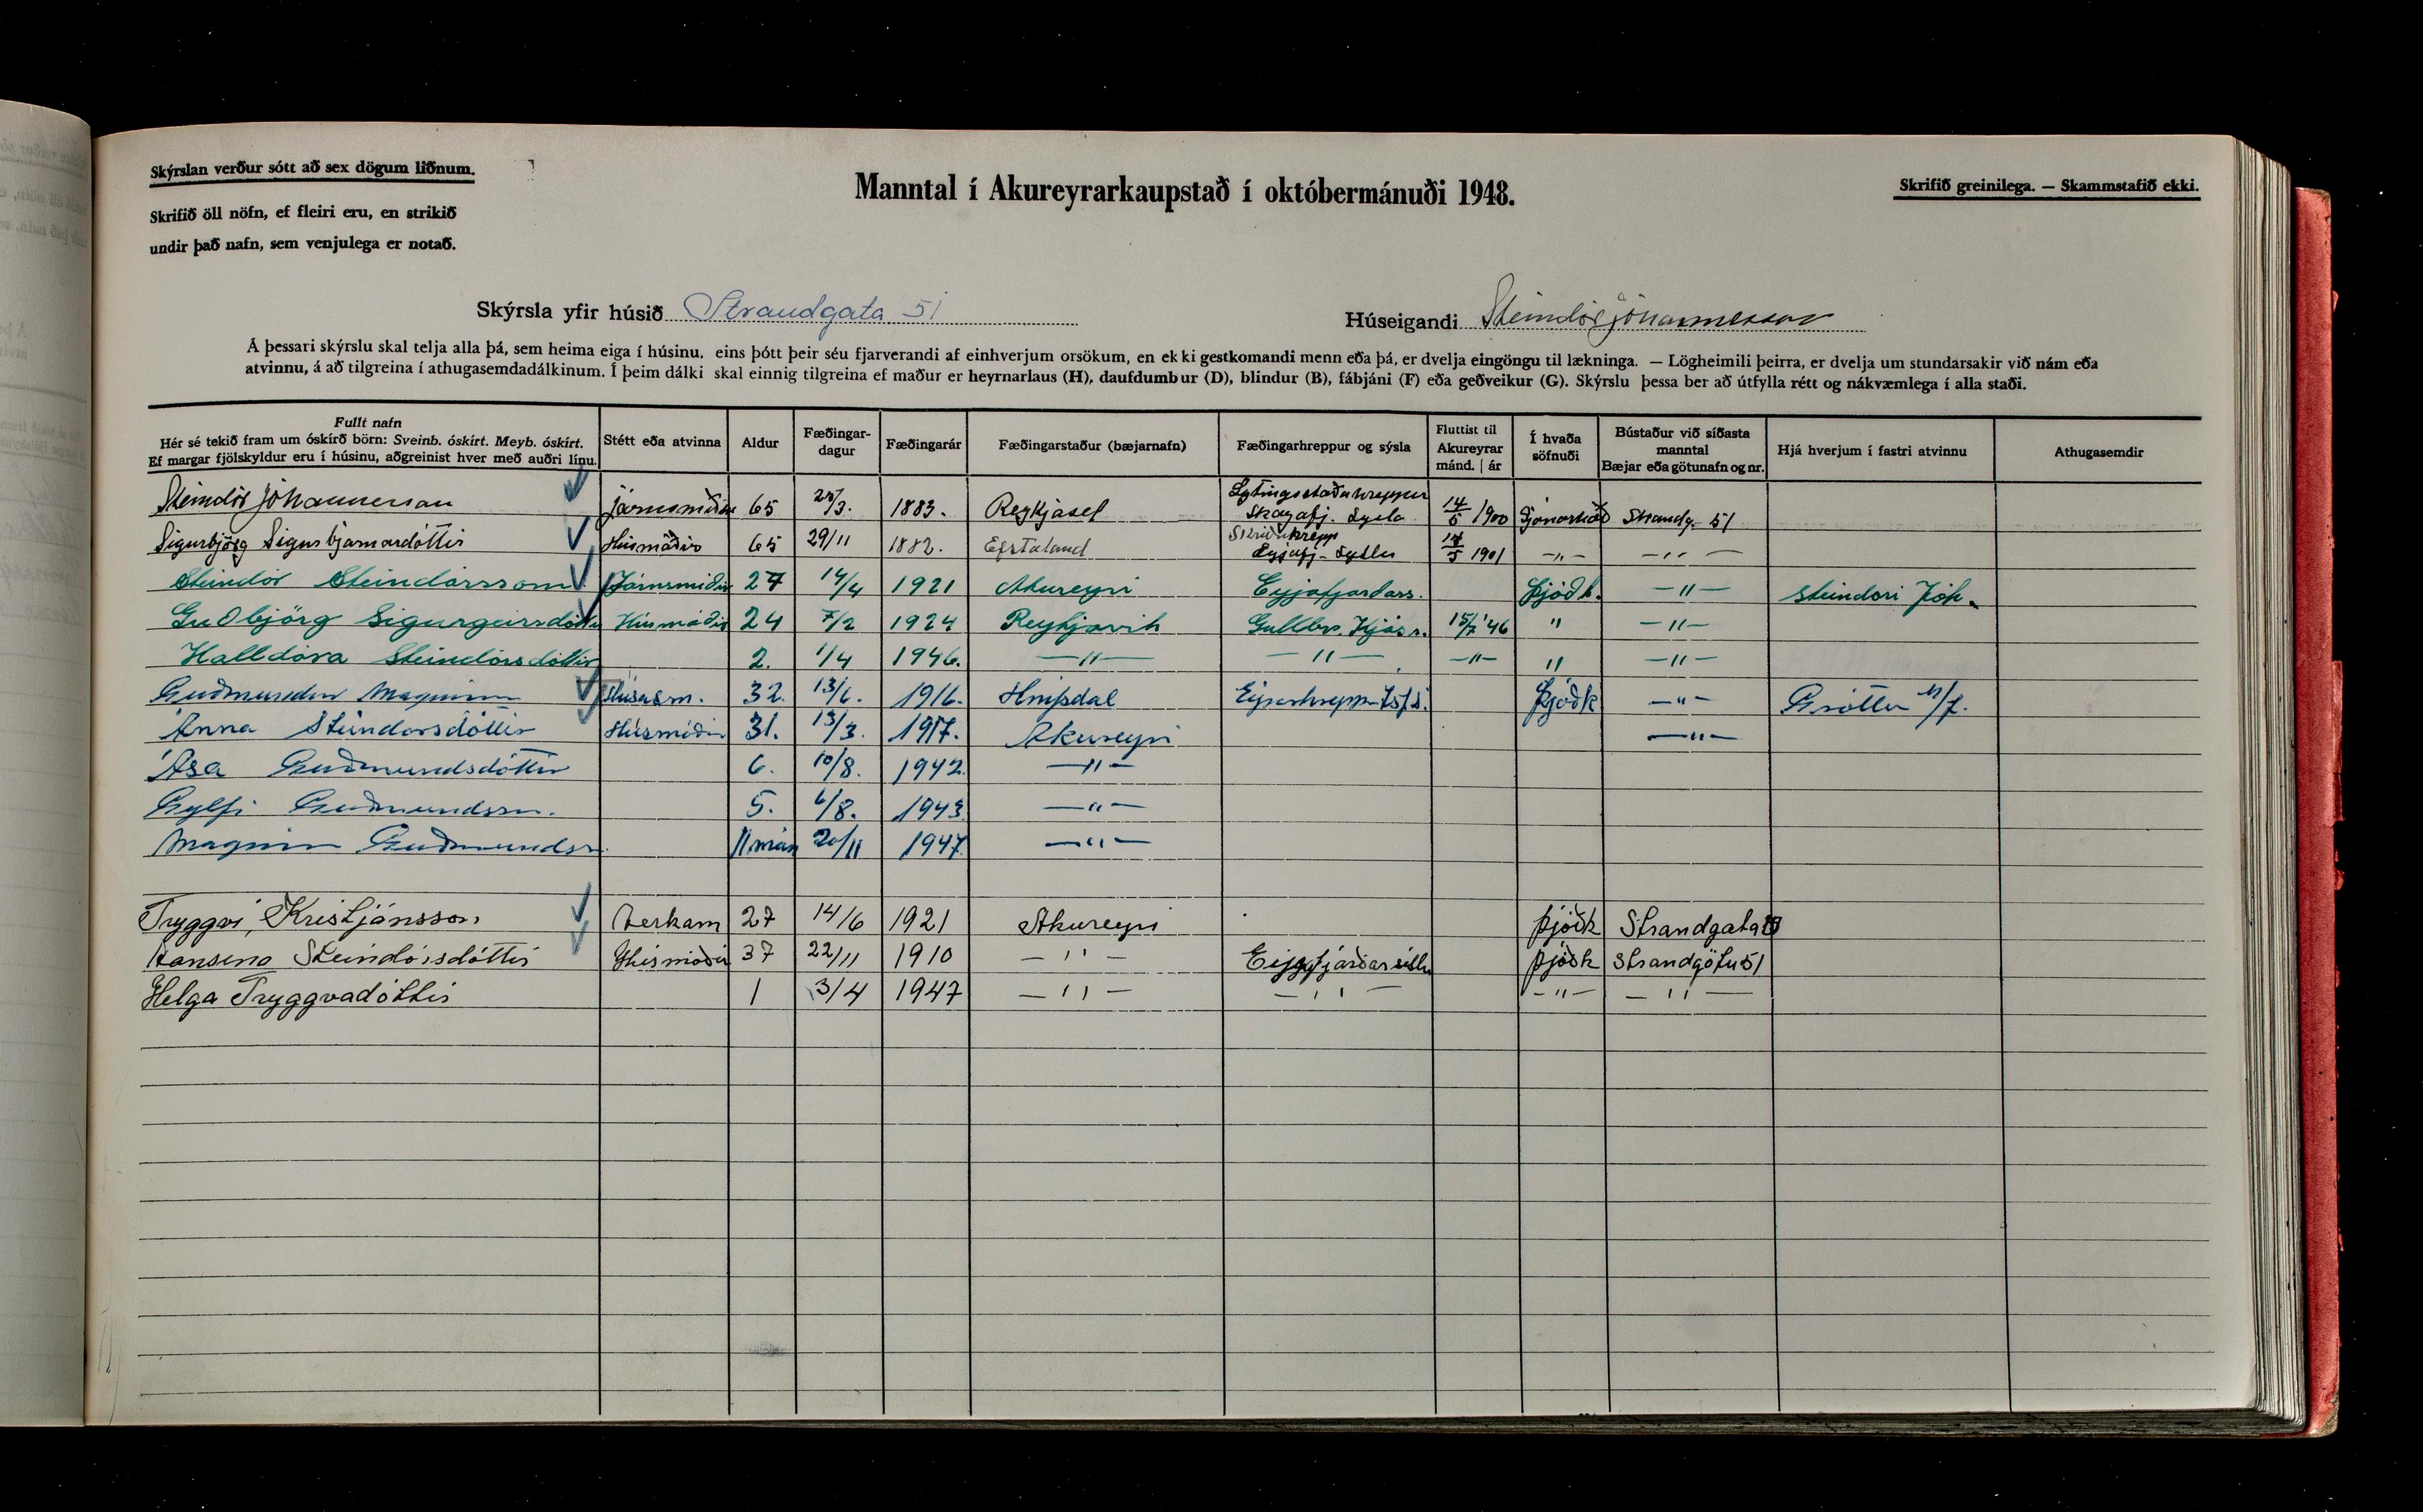 Skýrslan verður sótt að sex dögum liðnum.
Skrifið öll nöfn, ef fleiri eru, en strikið
undir það nafn, sem venjulega er notað.
Manntal í Akureyrarkaupstað í októbermánuði 1948.
Skrifið greinilega. — Skammstafið ekki.
Skýrsla yfir húsið Strandgata 51
Húseigandi Steindór Jóhannesson
Á þessari skýrslu skal telja alla þá, sem heima eiga í húsinu, eins þótt þeir séu fjarverandi af einhverjum orsökum, en ekki gestkomandi menn eða þá, er dvelja eingöngu til lækninga. — Lögheimili þeirra, er dvelja um stundarsakir við nám eða
atvinnu, á að tilgreina í athugasemdadálkinum. Í þeim dálki skal einnig tilgreina ef maður er heyrnarlaus (H), daufdumbur (D), blindur (B), fábjáni (F) eða geðveikur (G). Skýrslu þessa ber að útfylla rétt og nákvæmlega í alla staði.
Fullt nafn
Hér sé tekið fram um óskírð börn: Sveinb. óskírt. Meyb. óskírt.
Ef margar fjölskyldur eru í húsinu, aðgreinist hver með auðri línu.
Stétt eða atvinna
Aldur
Fæðingar-
dagur
Fæðingarár
Fæðingarstaður (bæjarnafn)
Fæðingarhreppur og sýsla
Fluttist til
Akureyrar
mánd. | ár
Í hvaða
söfnuði
Bústaður við síðasta
manntal
Bæjar eða götunafn og nr.
Hjá hverjum í fastri atvinnu
Athugasemdir
Steindór Jóhannesson járnsmiður 65 1883. Reykjasel Lytingsstaðahreppur Skagafj. Sýsla 14/5 1900 Strandg. 51
Sigurbjörg Sigurbjarnardóttir Húsmóðir 65 29/11 1882. Efstaland Skriðuhrepp Eyjafj. Sýslu 14/5 1901 —"— —"—
Steindór Steindórsson Járnsmiður 27 14/4 1921 Akureyri Eyjafjarðars. Þjóðk. —"— Steindóri Jóh.
Guðbjörg Sigurgeirsdóttir Húsmóðir 24 7/2 1924 Reykjavík Gullbr. Kjós s. 15/7 '46 " —"—
Halldóra Steindórsdóttir 2. 1/4 1946. —"— —"— —"— " —"—
Guðmundur Magnússon Húsasm. 32. 13/6. 1916. Hnífsdal Eyrarhreppi Þjóðk —"— Grótta h/f.
Anna Steindórsdóttir Húsmóðir 31. 13/3. 1917. Akureyri —"—
Ása Guðmundsdóttir 6. 10/8. 1942. —"—
Gylfi Guðmundsson. 5. 6/8. 1943. —"—
Magnús Guðmundss. 11 mán 20/11 1947. —"—
Tryggvi Kristjánsson Verkam 27 14/6 1921 Akureyri þjóðk Strandgata
Hansína Steindórsdóttir Húsmóðir 37 22/11 1910 —"— Eyjafjarðarsýslu þjóðk Strandgötu 51
Helga Tryggvadóttir 1 3/4 1947 —"— —"— —"— —"—